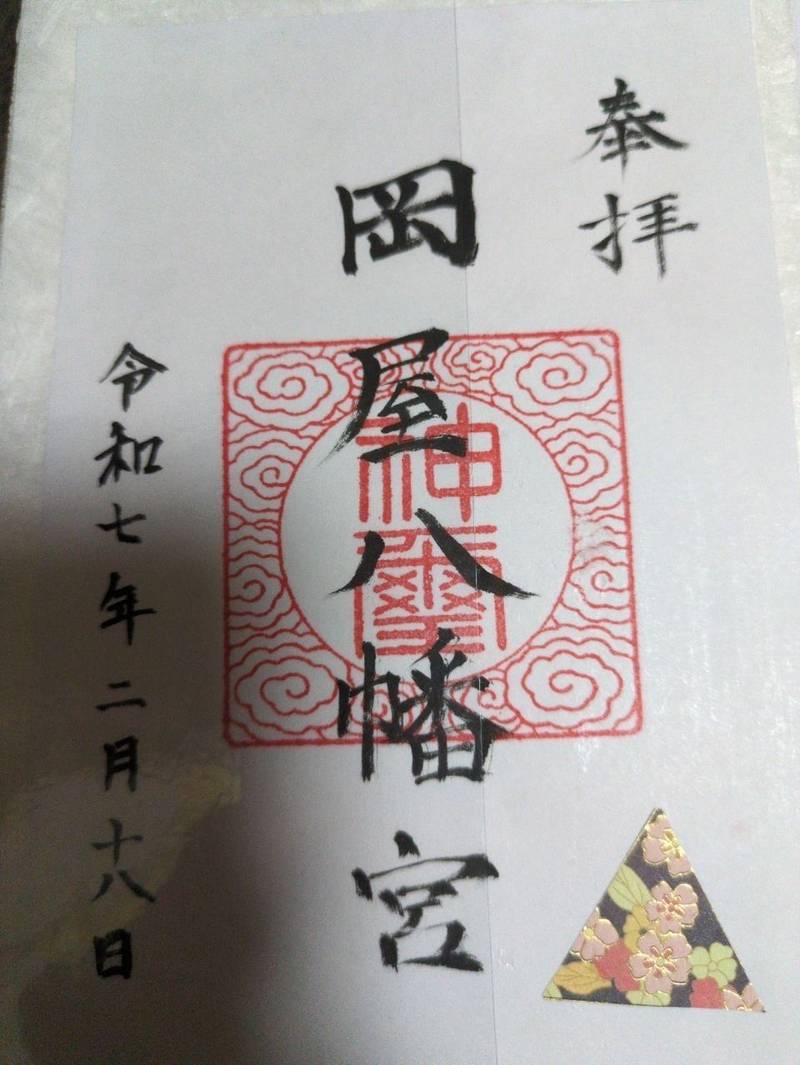 奉拝
岡屋八幡宮
神璽
令和七年二月十八日